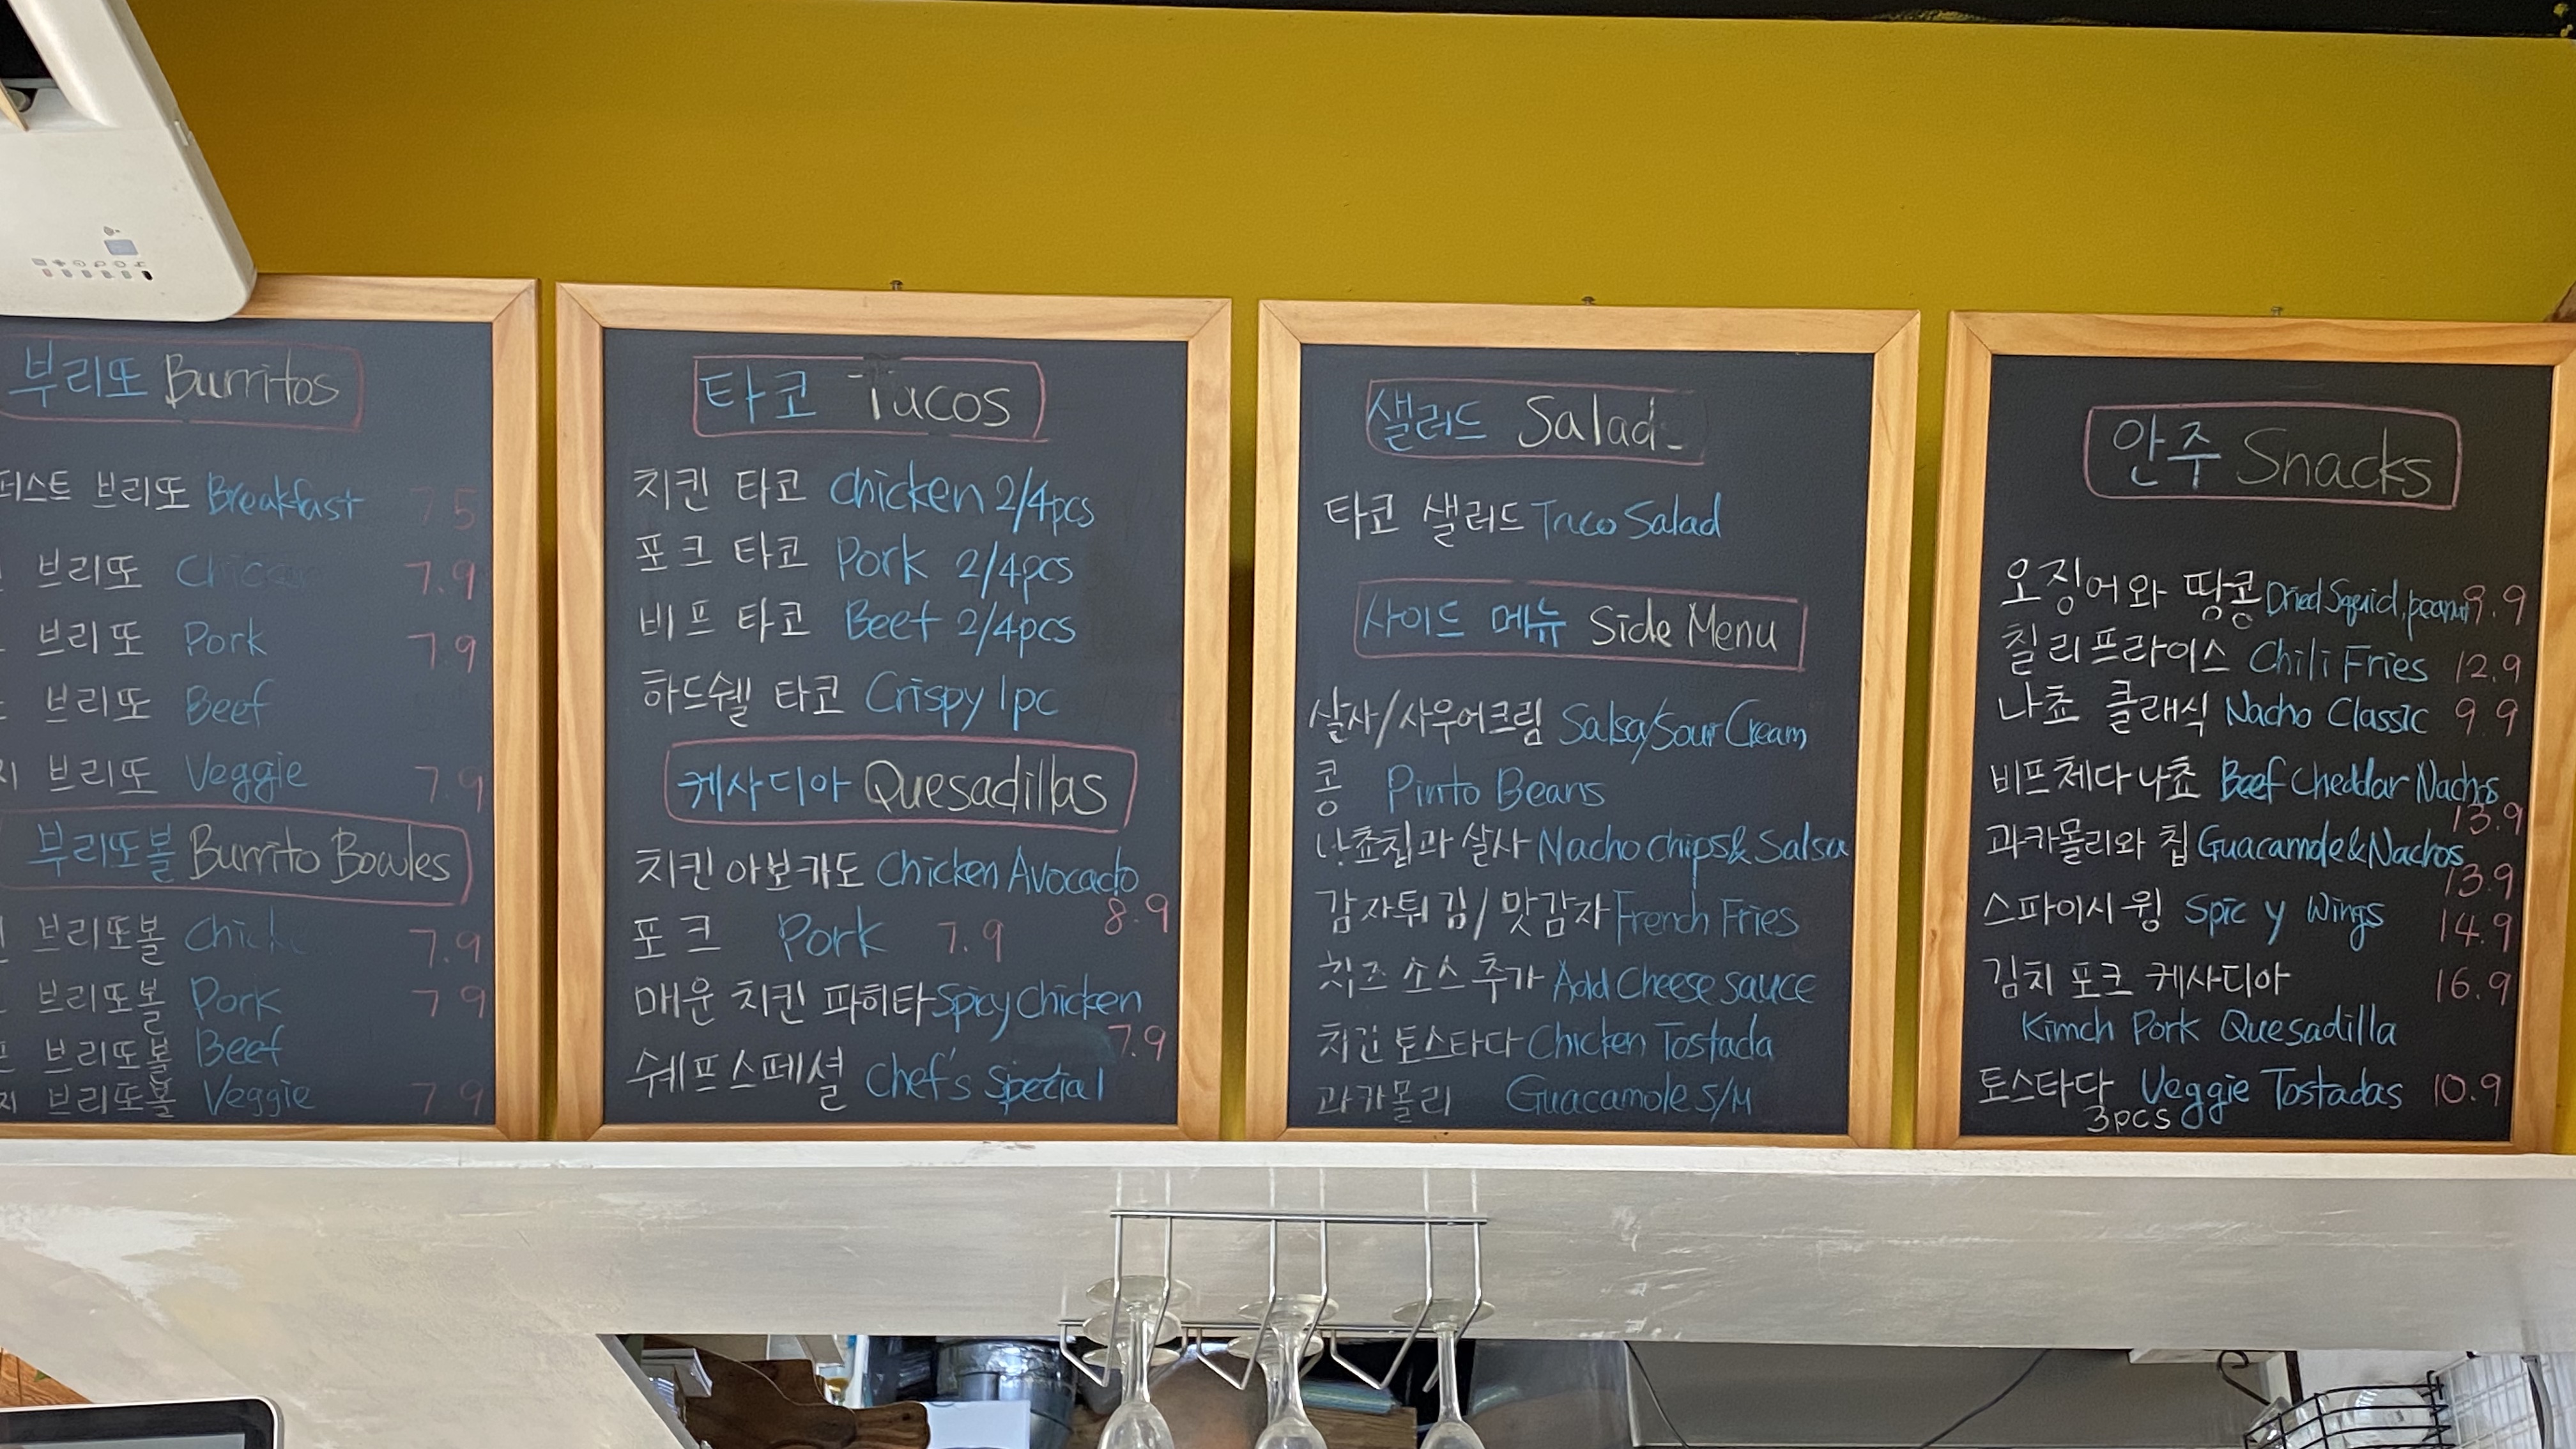 부리또 Burritos
브리또 Breakfast 7.5
브리또 7.9
브리또 Pork 7.9
브리또 Beef
브리또 Veggie 7.9
부리또볼 Burrito Bowles
브리또볼 7.9
브리또볼 Pork 7 9
브리또볼 Beef
브리또볼 Veggie 7.9
타코 Tacos
치킨 타코 Chicken 2/4pcs
포크 타코 Pork 2/4pcs
비프 타코 Beef 2/4pcs
하드쉘 타코 Crispy 1pc
케사디아 Quesadillas
치킨 아보카도 Chicken Avocado
8.9
포크 Pork 7.9
매운 치킨 파히타 Spicy Chicken
7.9
쉐프스페셜 Chef's Special
샐러드 Salad
타코 샐러드 Taco Salad
사이드 메뉴 Side Menu
살사/사우어크림 Salsa/Sour Cream
콩 Pinto Beans
나쵸칩과 살사 Nacho Chips & Salsa
감자튀김/맛감자 French Fries
치즈 소스 추가 Add Cheese sauce
치킨 토스타다 Chicken Tostada
과카몰리 Guacamole S/M
안주 Snacks
오징어와 땅콩 Dried Squid, peanut 9.9
칠리프라이스 Chili Fries 12.9
나쵸 클래식 Nacho Classic 9.9
비프체다나쵸 Beef Cheddar Nachos
13.9
과카몰리와 칩 Guacamole & Nachos
13.9
스파이시 윙 Spicy Wings 14.9
김치 포크 케사디아 16.9
Kimch Pork Quesadilla
토스타다 Veggie Tostadas 10.9
3pcs